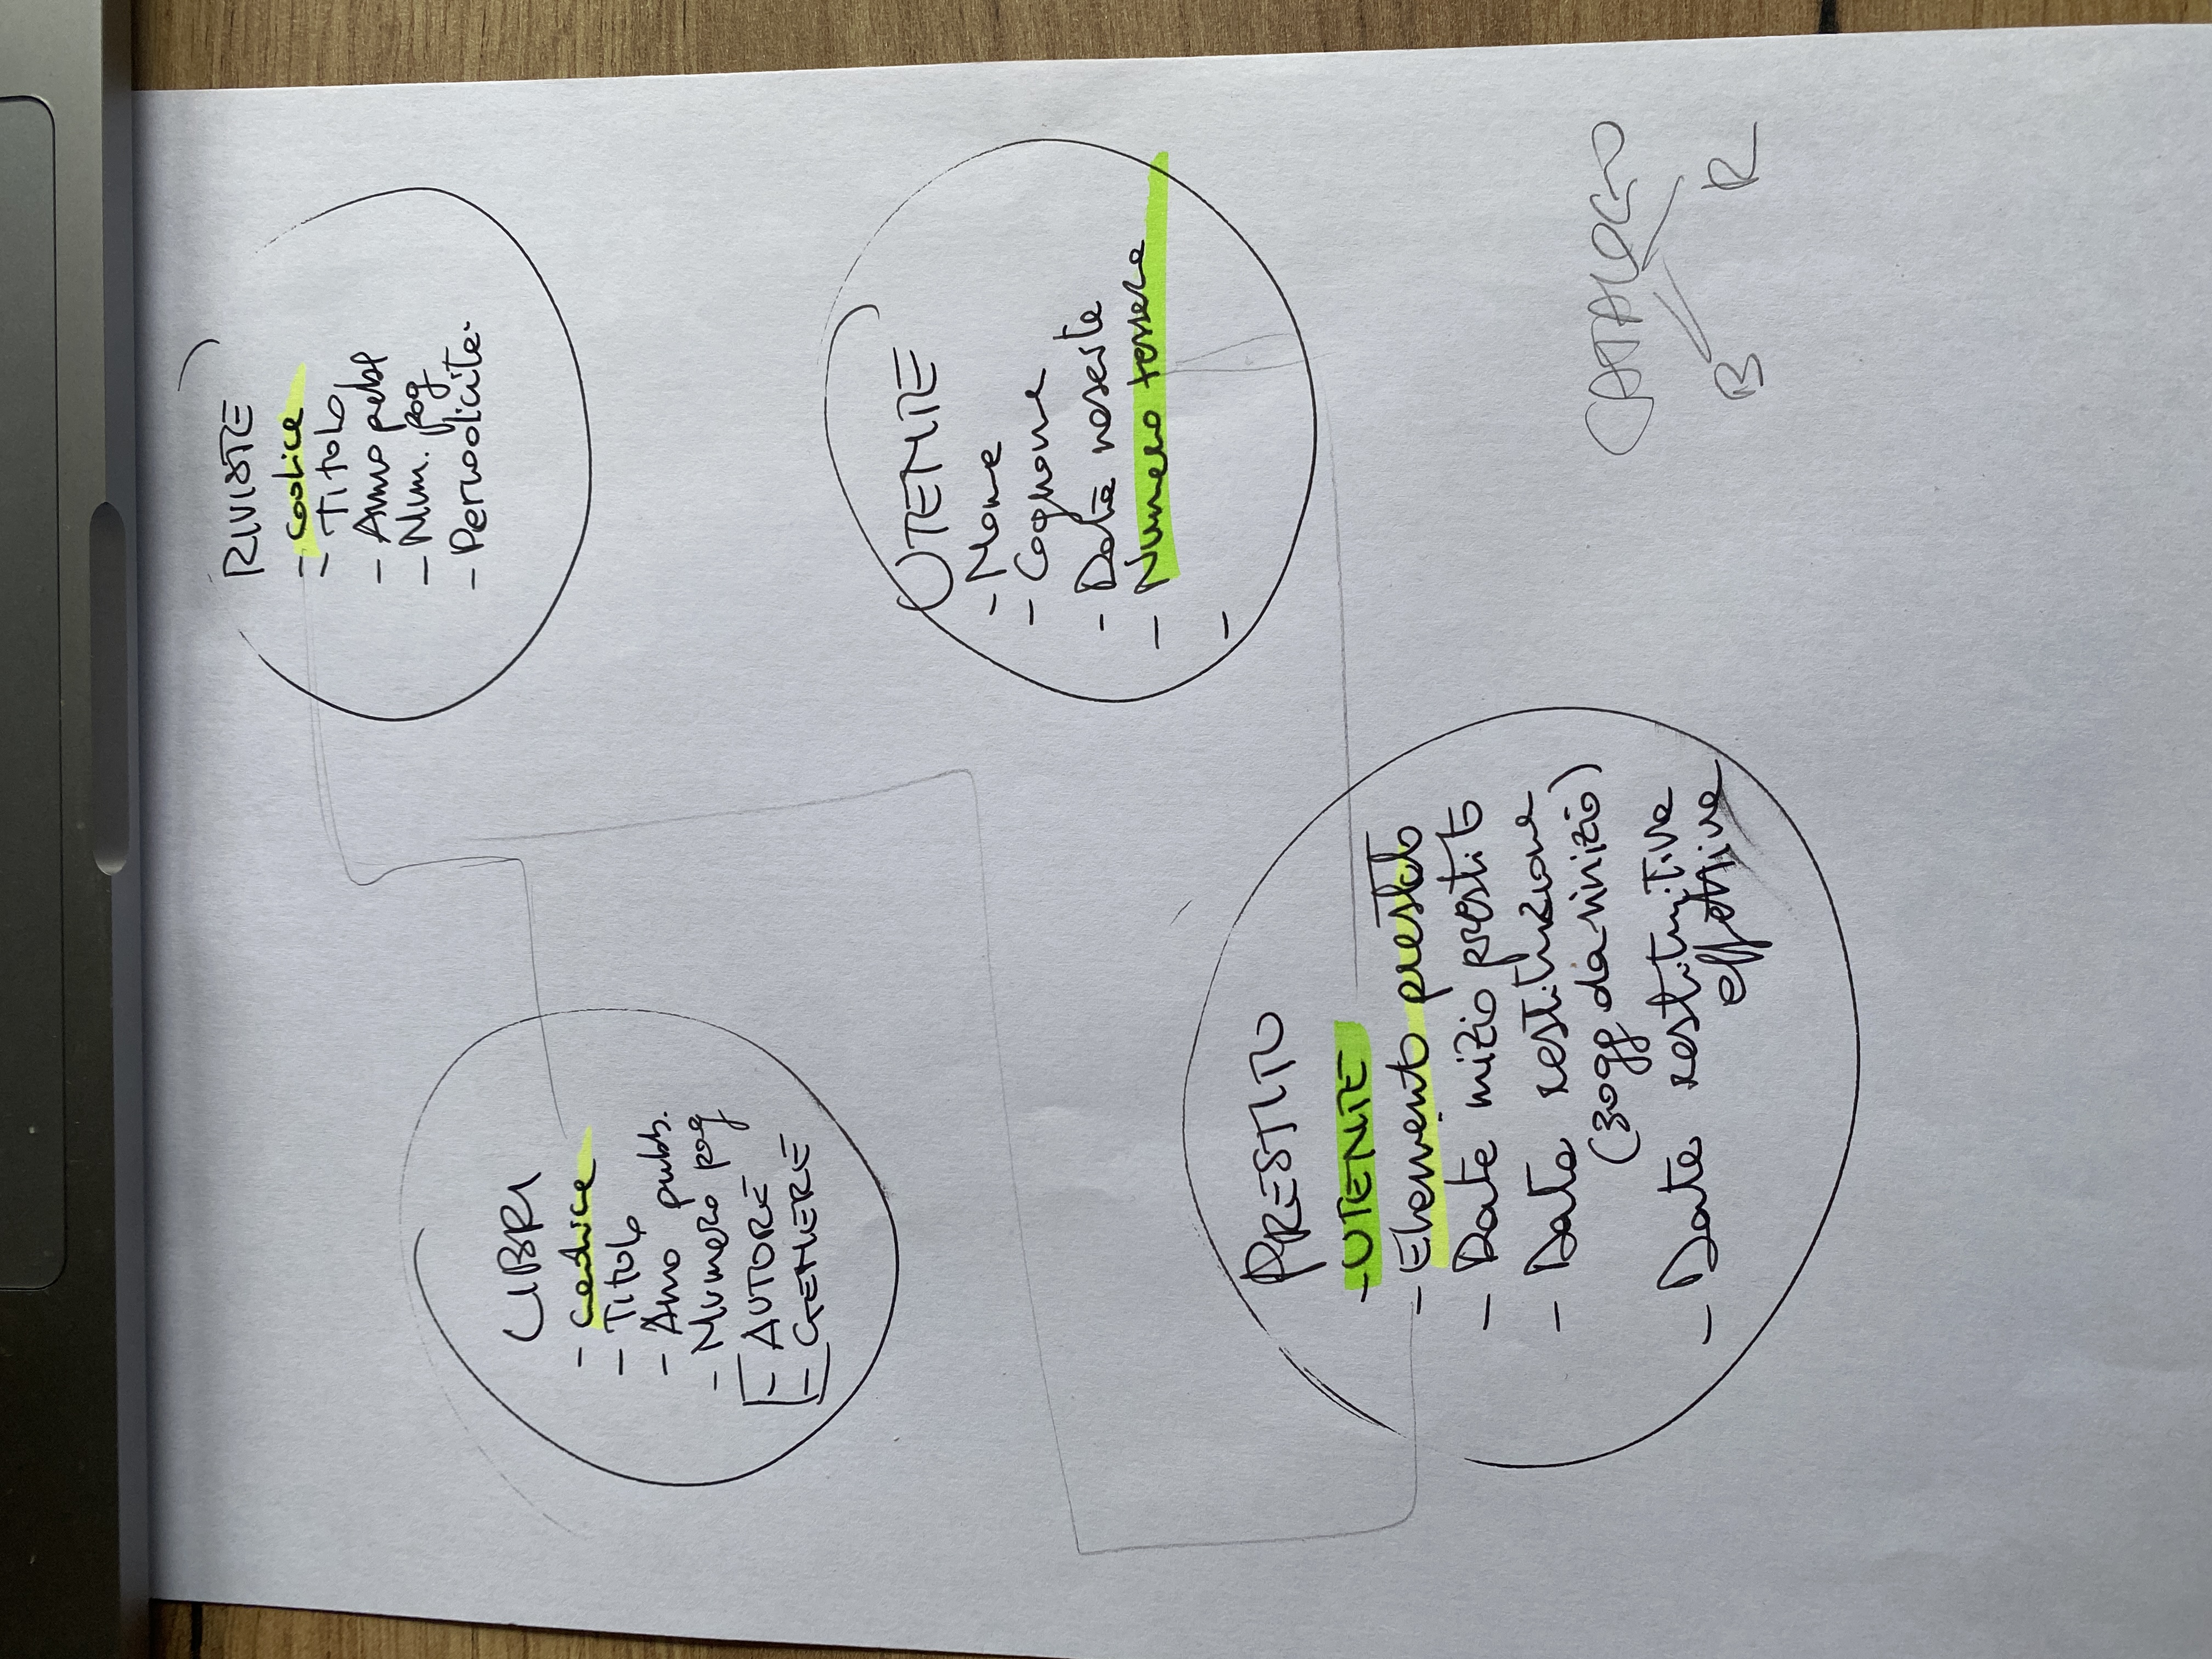 RIVISTE
- Codice
- Titolo
- Anno publ
- Num. pag
- Periodicità
LIBRI
- Codice
- Titolo
- Anno pubb.
- Numero pag
- AUTORE
- GENERE
UTENTE
- Nome
- Cognome
- Data nascita
- Numero tessera
-
PRESTITO
- UTENTE
- Elemento prestato
- Data inizio prestito
- Data restituzione
(30gg da inizio)
- Data restitutiva
effettiva
CATALOGO
B R